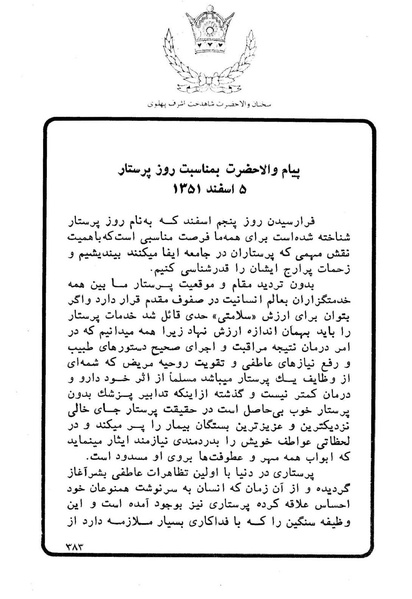 سخنان والاحضرت شاهدخت اشرف پهلوی
پیام والاحضرت بمناسبت روز پرستار
۵ اسفند ۱۳۵۱
فرارسیدن روز پنجم اسفند که به‌نام روز پرستار
شناخته شده‌است برای همه‌ما فرصت مناسبی است‌که‌باهمیت
نقش مهمی که پرستاران در جامعه ایفا میکنند بیندیشیم و
زحمات پرارج ایشان را قدرشناسی کنیم.
بدون تردید مقام و موقعیت پرستار ما بین همه
خدمتگزاران بعالم انسانیت در صفوف مقدم قرار دارد واگر
بتوان برای ارزش «سلامتی» حدی قائل شد خدمات پرستار
را باید بهمان اندازه ارزش نهاد زیرا همه میدانیم که در
امر درمان نتیجه مراقبت و اجرای صحیح دستورهای طبیب
و رفع نیازهای عاطفی و تقویت روحیه مریض که شمه‌ای
از وظایف یك پرستار میباشد مسلماً از اثر خود دارو و
درمان کمتر نیست و گذشته ازاینکه تدابیر پزشك بدون
پرستار خوب بی‌حاصل است در حقیقت پرستار جای خالی
نزدیکترین و عزیزترین بستگان بیمار را پر میکند و در
لحظاتی عواطف خویش را بدردمندی نیازمند ایثار مینماید
که ابواب همه مهر و عطوفت‌ها بروی او مسدود است.
پرستاری در دنیا با اولین تظاهرات عاطفی بشرآغاز
گردیده و از آن زمان که انسان به سرنوشت همنوعان خود
احساس علاقه کرده پرستاری نیز بوجود آمده است و این
وظیفه سنگین را که با فداکاری بسیار ملازمه دارد از
۳۸۳